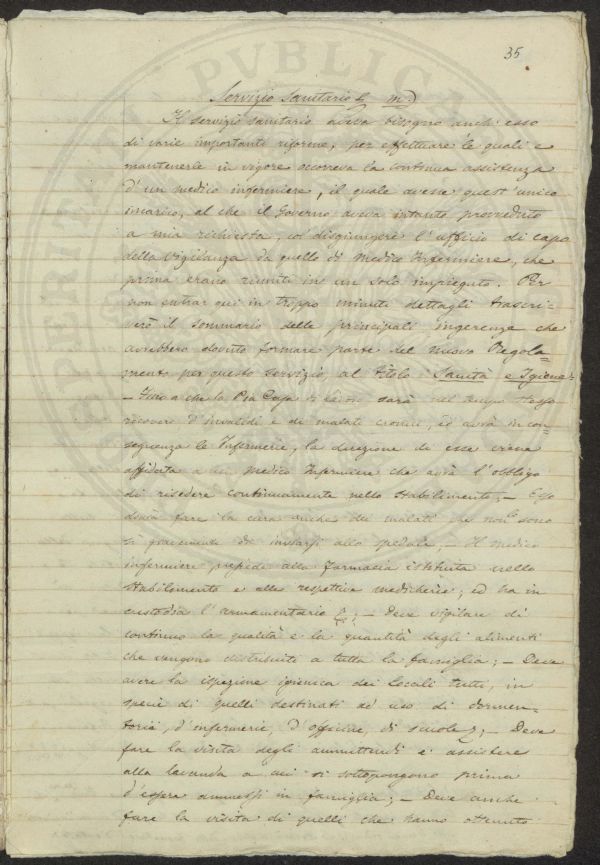 35
Servizio Sanitario
Il servizio sanitario aveva bisogno anch'esso
di varie importanti riforme, per effettuare le quali e
mantenerle in vigore occorreva la continua assistenza
d'un medico infermiere, il quale avesse quest'unico
incarico, al che il Governo aveva intanto provveduto
a mia richiesta, col disgiungere l'ufficio di capo
della vigilanza da quello di Medico Infermiere, che
prima erano riuniti in un solo impiegato. Per
non entrar qui in troppo minuti dettagli trascri-
verò il sommario delle principali ingerenze che
avrebbero dovuto formare parte del nuovo Regola-
mento per questo servizio, al titolo: Sanità e Igiene:
- Fino a che la Pia Casa di lavoro sarà nel tempo stesso
ricovero d'invalidi e di malati cronici, ed avrà in con-
seguenza le Infermerie, la direzione di esse viene
affidata a un Medico Infermiere che avrà l'obbligo
di risedere continuamente nello Stabilimento; - Esso
dovrà fare la cura anche dei malati che non sono
sì gravemente da inviarsi allo spedale; - Il medico
infermiere presiede alla Farmacia istituita nello
Stabilimento e alle respettive medicherie, ed ha in
custodia l'armamentario; - Deve vigilare di
continuo la qualità e la quantità degli alimenti
che vengono distribuiti a tutta la famiglia; - Deve
avere la ispezione igienica dei locali tutti, in
specie di quelli destinati ad uso di dormen-
toria, d'infermerie, d'officine, di scuole; - Deve
fare la visita degli ammittendi e assistere
alla lavanda a cui si sottopongono prima
d'essere ammessi in famiglia; - Deve anche
fare la visita di quelli che hanno ottenuto